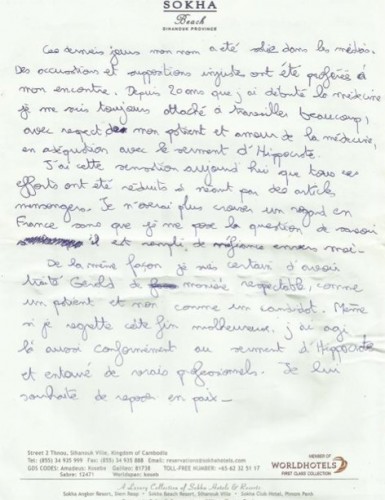 SOKHA
Beach
SIHANOUK PROVINCE
Ces derniers jours mon nom a été sali dans les médias.
Des accusations et suppositions injustes ont été proférées à
mon encontre. Depuis 20 ans que j'ai débuté la médecine
je me suis toujours attaché à travailler beaucoup,
avec respect de mon patient et amour de la médecine,
en adéquation avec le serment d'Hippocrate.
J'ai cette sensation aujourd'hui que tous ces
efforts ont été réduits à néant par des articles
mensongers. Je n'oserai plus croiser un regard en
France sans que je me pose la question de savoir
il est rempli de méfiance envers moi -
De la même façon je suis certain d'avoir
traité Gérald de manière respectable, comme
un patient et non comme un candidat. Même
si je regrette cette fin malheureuse, j'ai agi
là aussi conformément au serment d'Hippocrate
et entouré de vrais professionnels. Je lui
souhaite de reposer en paix -
Street 2 Thnou, Sihanouk Ville, Kingdom of Cambodia
Tel: (855) 34 935 999 Fax: (855) 34 935 888 Email: reservations@sokhahotels.com
GDS CODES: Amadeus: Galileo: 81738 TOLL-FREE NUMBER: +65-62 32 51 17
Sabre: 12471 Worldspan:
MEMBER OF
WORLDHOTELS
FIRST CLASS COLLECTION
A Luxury Collection of Sokha Hotels & Resorts
Sokha Angkor Resort, Siem Reap - Sokha Beach Resort, Sihanouk Ville - Sokha Club Hotel, Phnom Penh